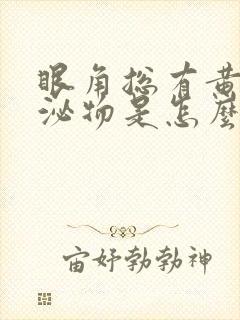 眼角总有黄
泌物是怎麼
宙好勃勃神